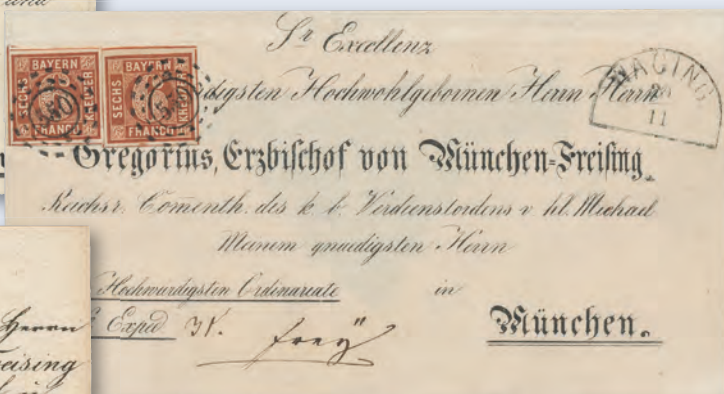 Sr Excellenz
BAYERN
SECHS
KREUZER
FRANCO
BAYERN
SECHS
KREUZER
FRANCO
WAGING
11
digsten Hochwohlgebornen Herrn Herrn
Gregorius, Erzbischof von München-Freising.
Reichsr. Comenth. des k. b. Verdienstordens v. hl. Michael
Meinem gnaedigsten Herrn
Hochwürdigsten Ordinariate in
Exped. München.
frey
Herrn
reising